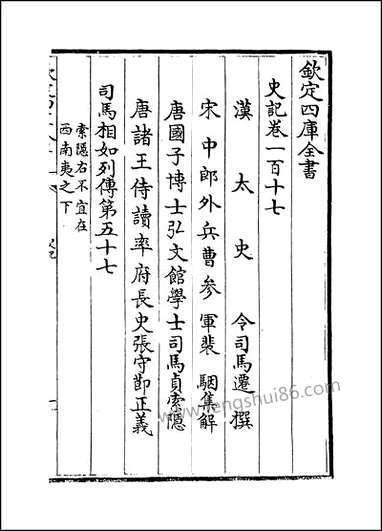 欽定四庫全書
史記卷一百十七
漢太史令司馬遷撰
宋中郎外兵曹參軍裴駰集解
唐國子博士弘文館學士司馬貞索隱
唐諸王侍讀率府長史張守節正義
司馬相如列傳第五十七
索隱右不宜在
西南夷之下
www.fengshui86.com